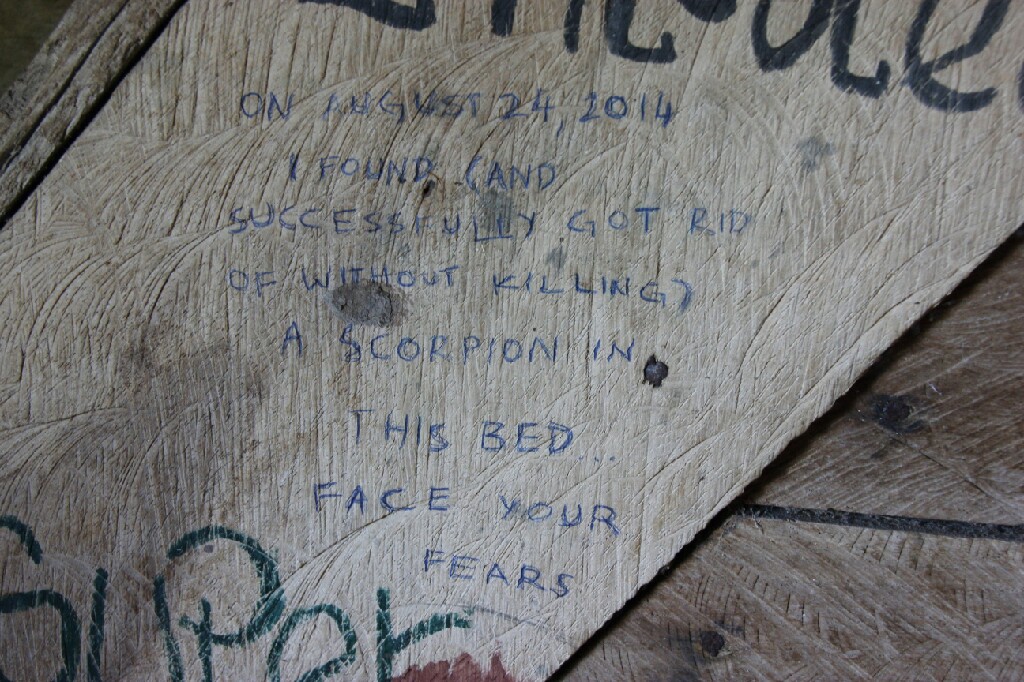 ON AUGUST 24, 2014
I FOUND (AND
SUCCESSFULLY GOT RID
OF WITHOUT KILLING)
A SCORPION IN
THIS BED...
FACE YOUR
FEARS